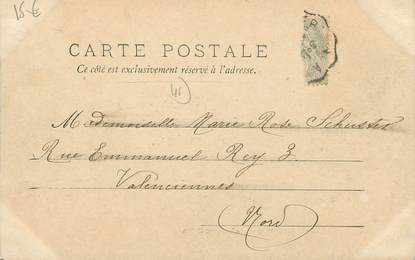 15 €
CARTE POSTALE
Ce côté est exclusivement réservé à l'adresse.
Mademoiselle Marie Rose Schuster
Rue Emmanuel Rey 3
Valenciennes
Nord